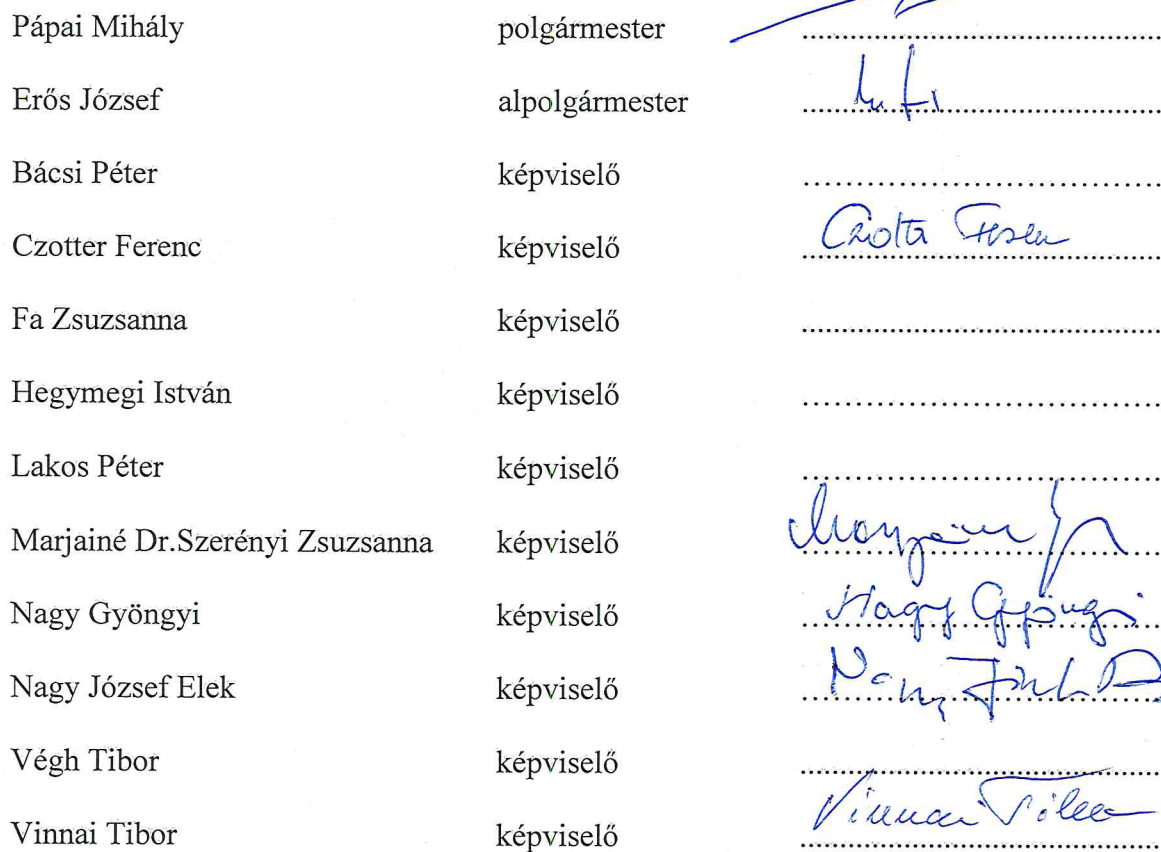 Pápai Mihály polgármester ........................................
Erős József alpolgármester ........................................
Bácsi Péter képviselő ........................................
Czotter Ferenc képviselő Czotter Ferenc
Fa Zsuzsanna képviselő ........................................
Hegymegi István képviselő ........................................
Lakos Péter képviselő ........................................
Marjainé Dr.Szerényi Zsuzsanna képviselő Marjainé
Nagy Gyöngyi képviselő Nagy Gyöngyi
Nagy József Elek képviselő Nagy József
Végh Tibor képviselő ........................................
Vinnai Tibor képviselő Vinnai Tibor